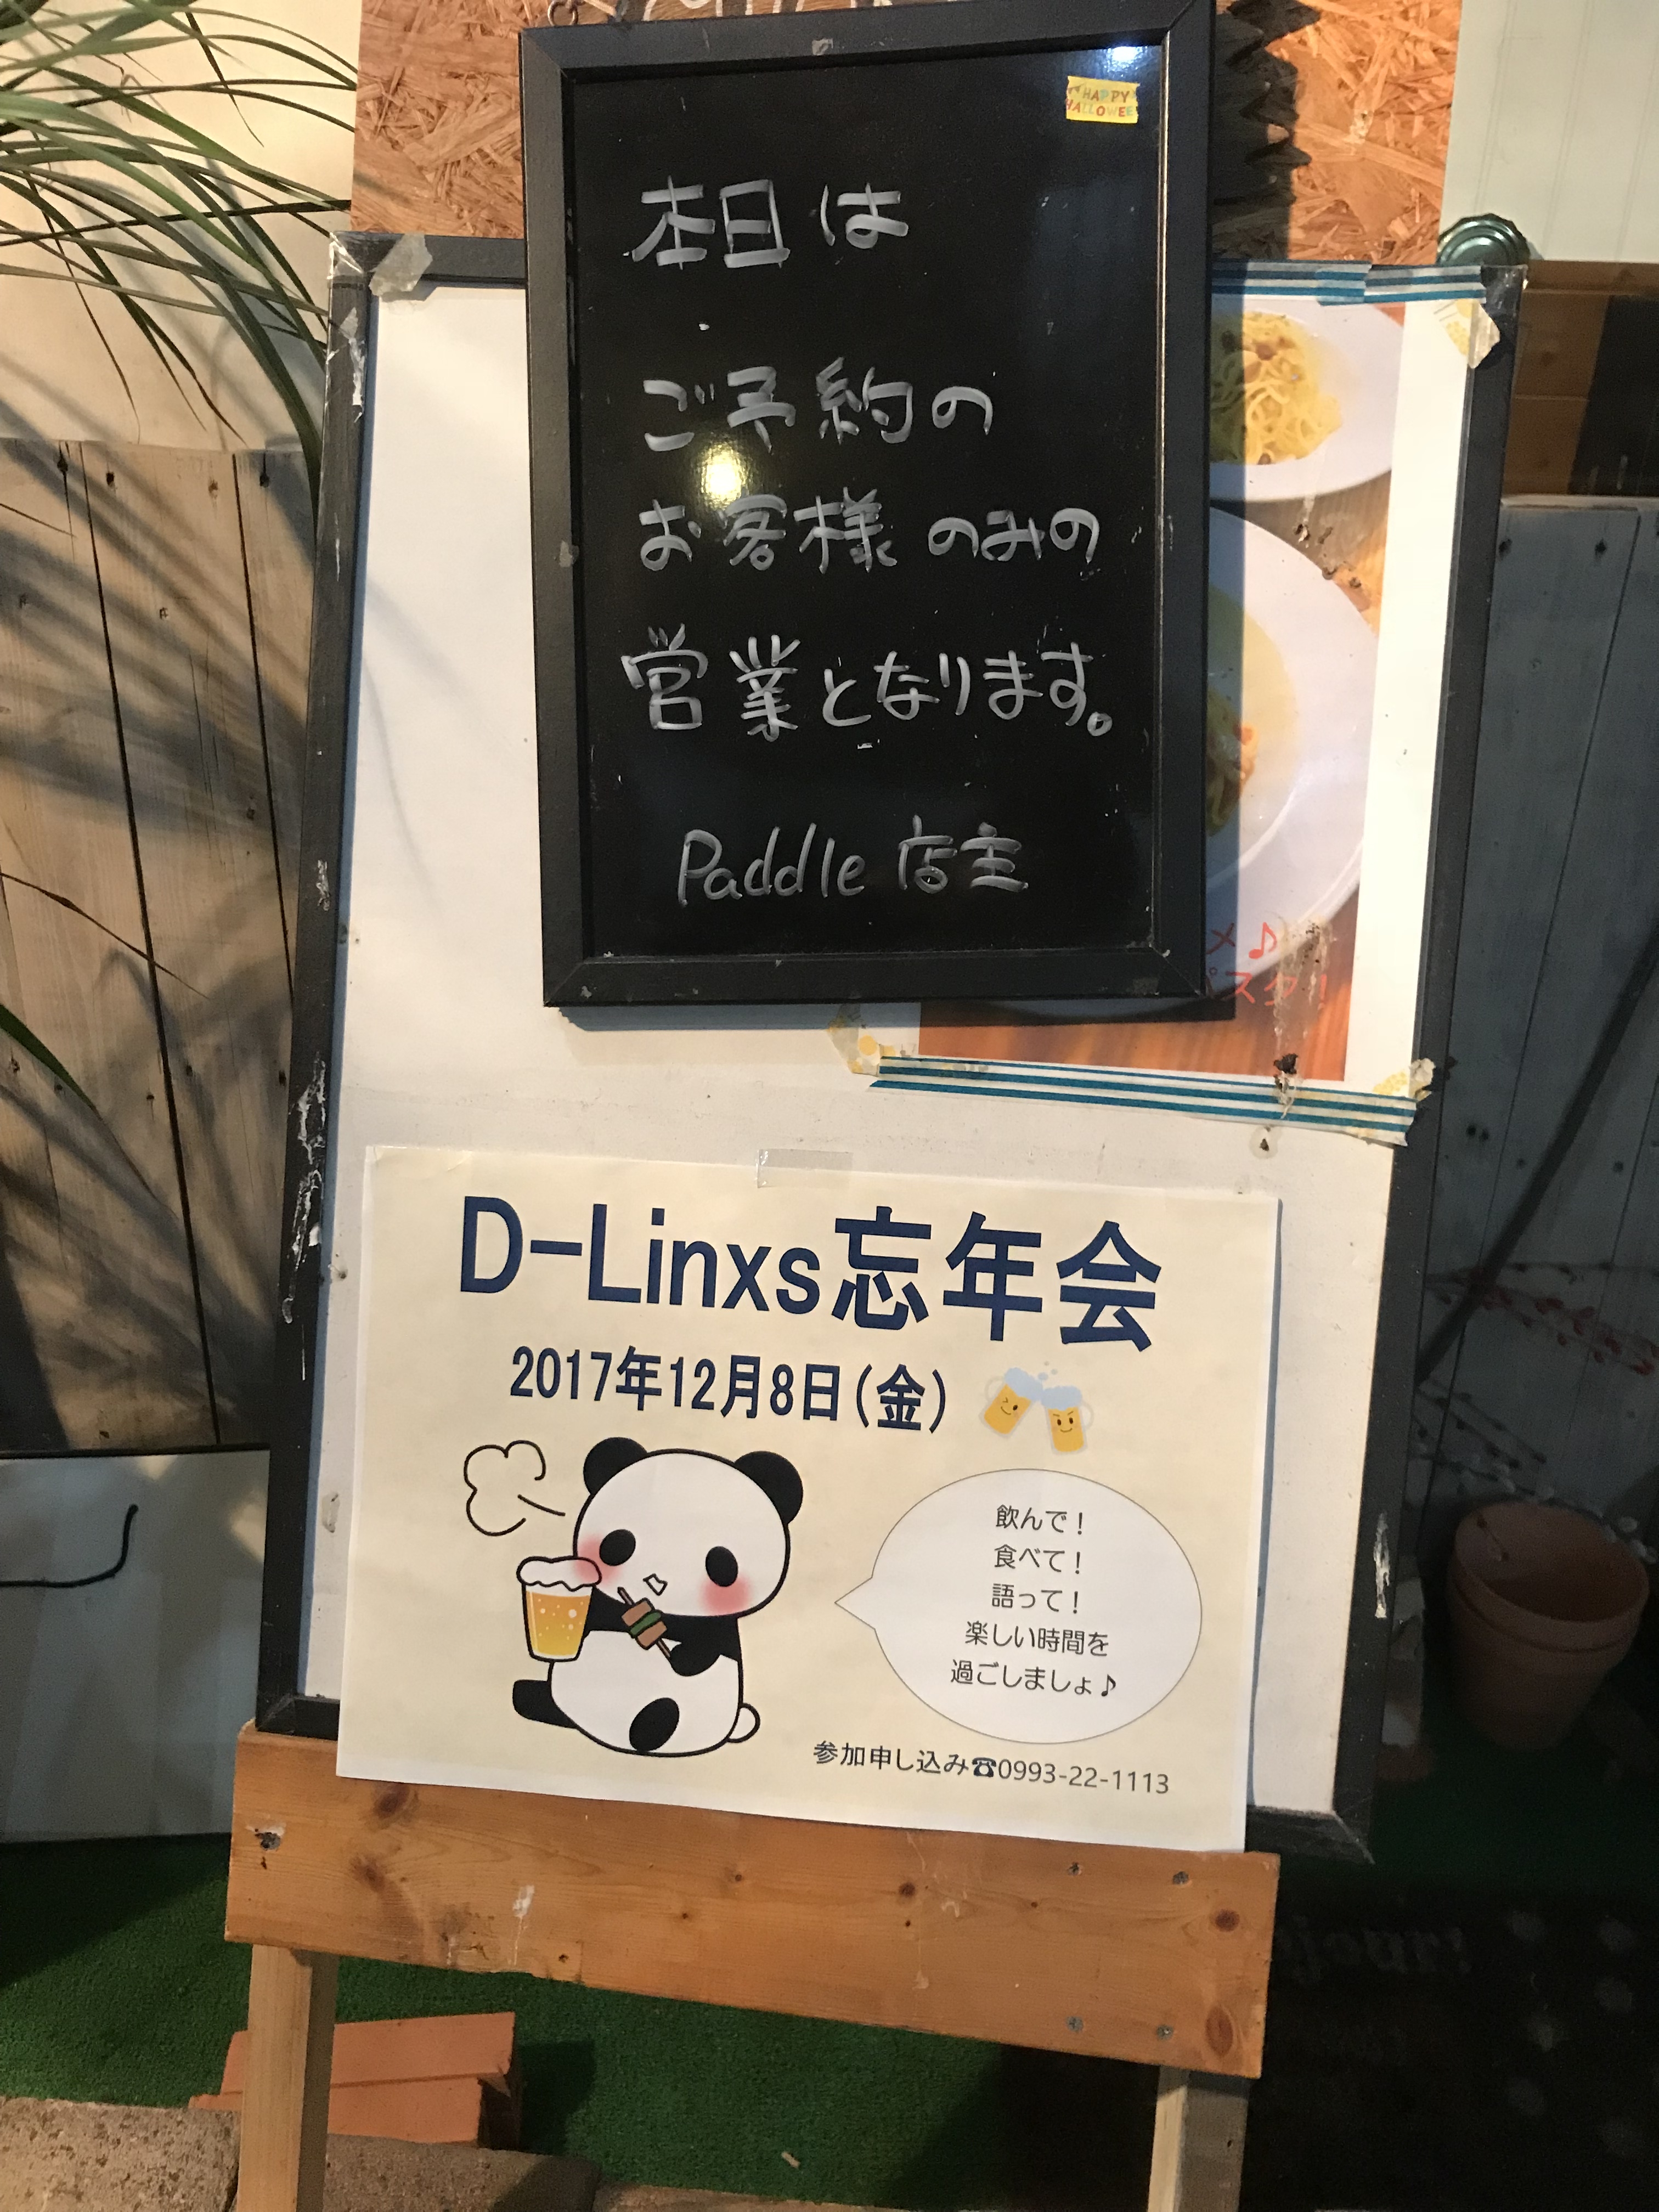 HAPPY
HALLOWEE
本日は
ご予約の
お客様のみの
営業となります。
Paddle 店主
メ♪
パスタ!
D-Linxs忘年会
2017年12月8日(金)
飲んで!
食べて!
語って!
楽しい時間を
過ごしましょ♪
参加申し込み☎0993-22-1113